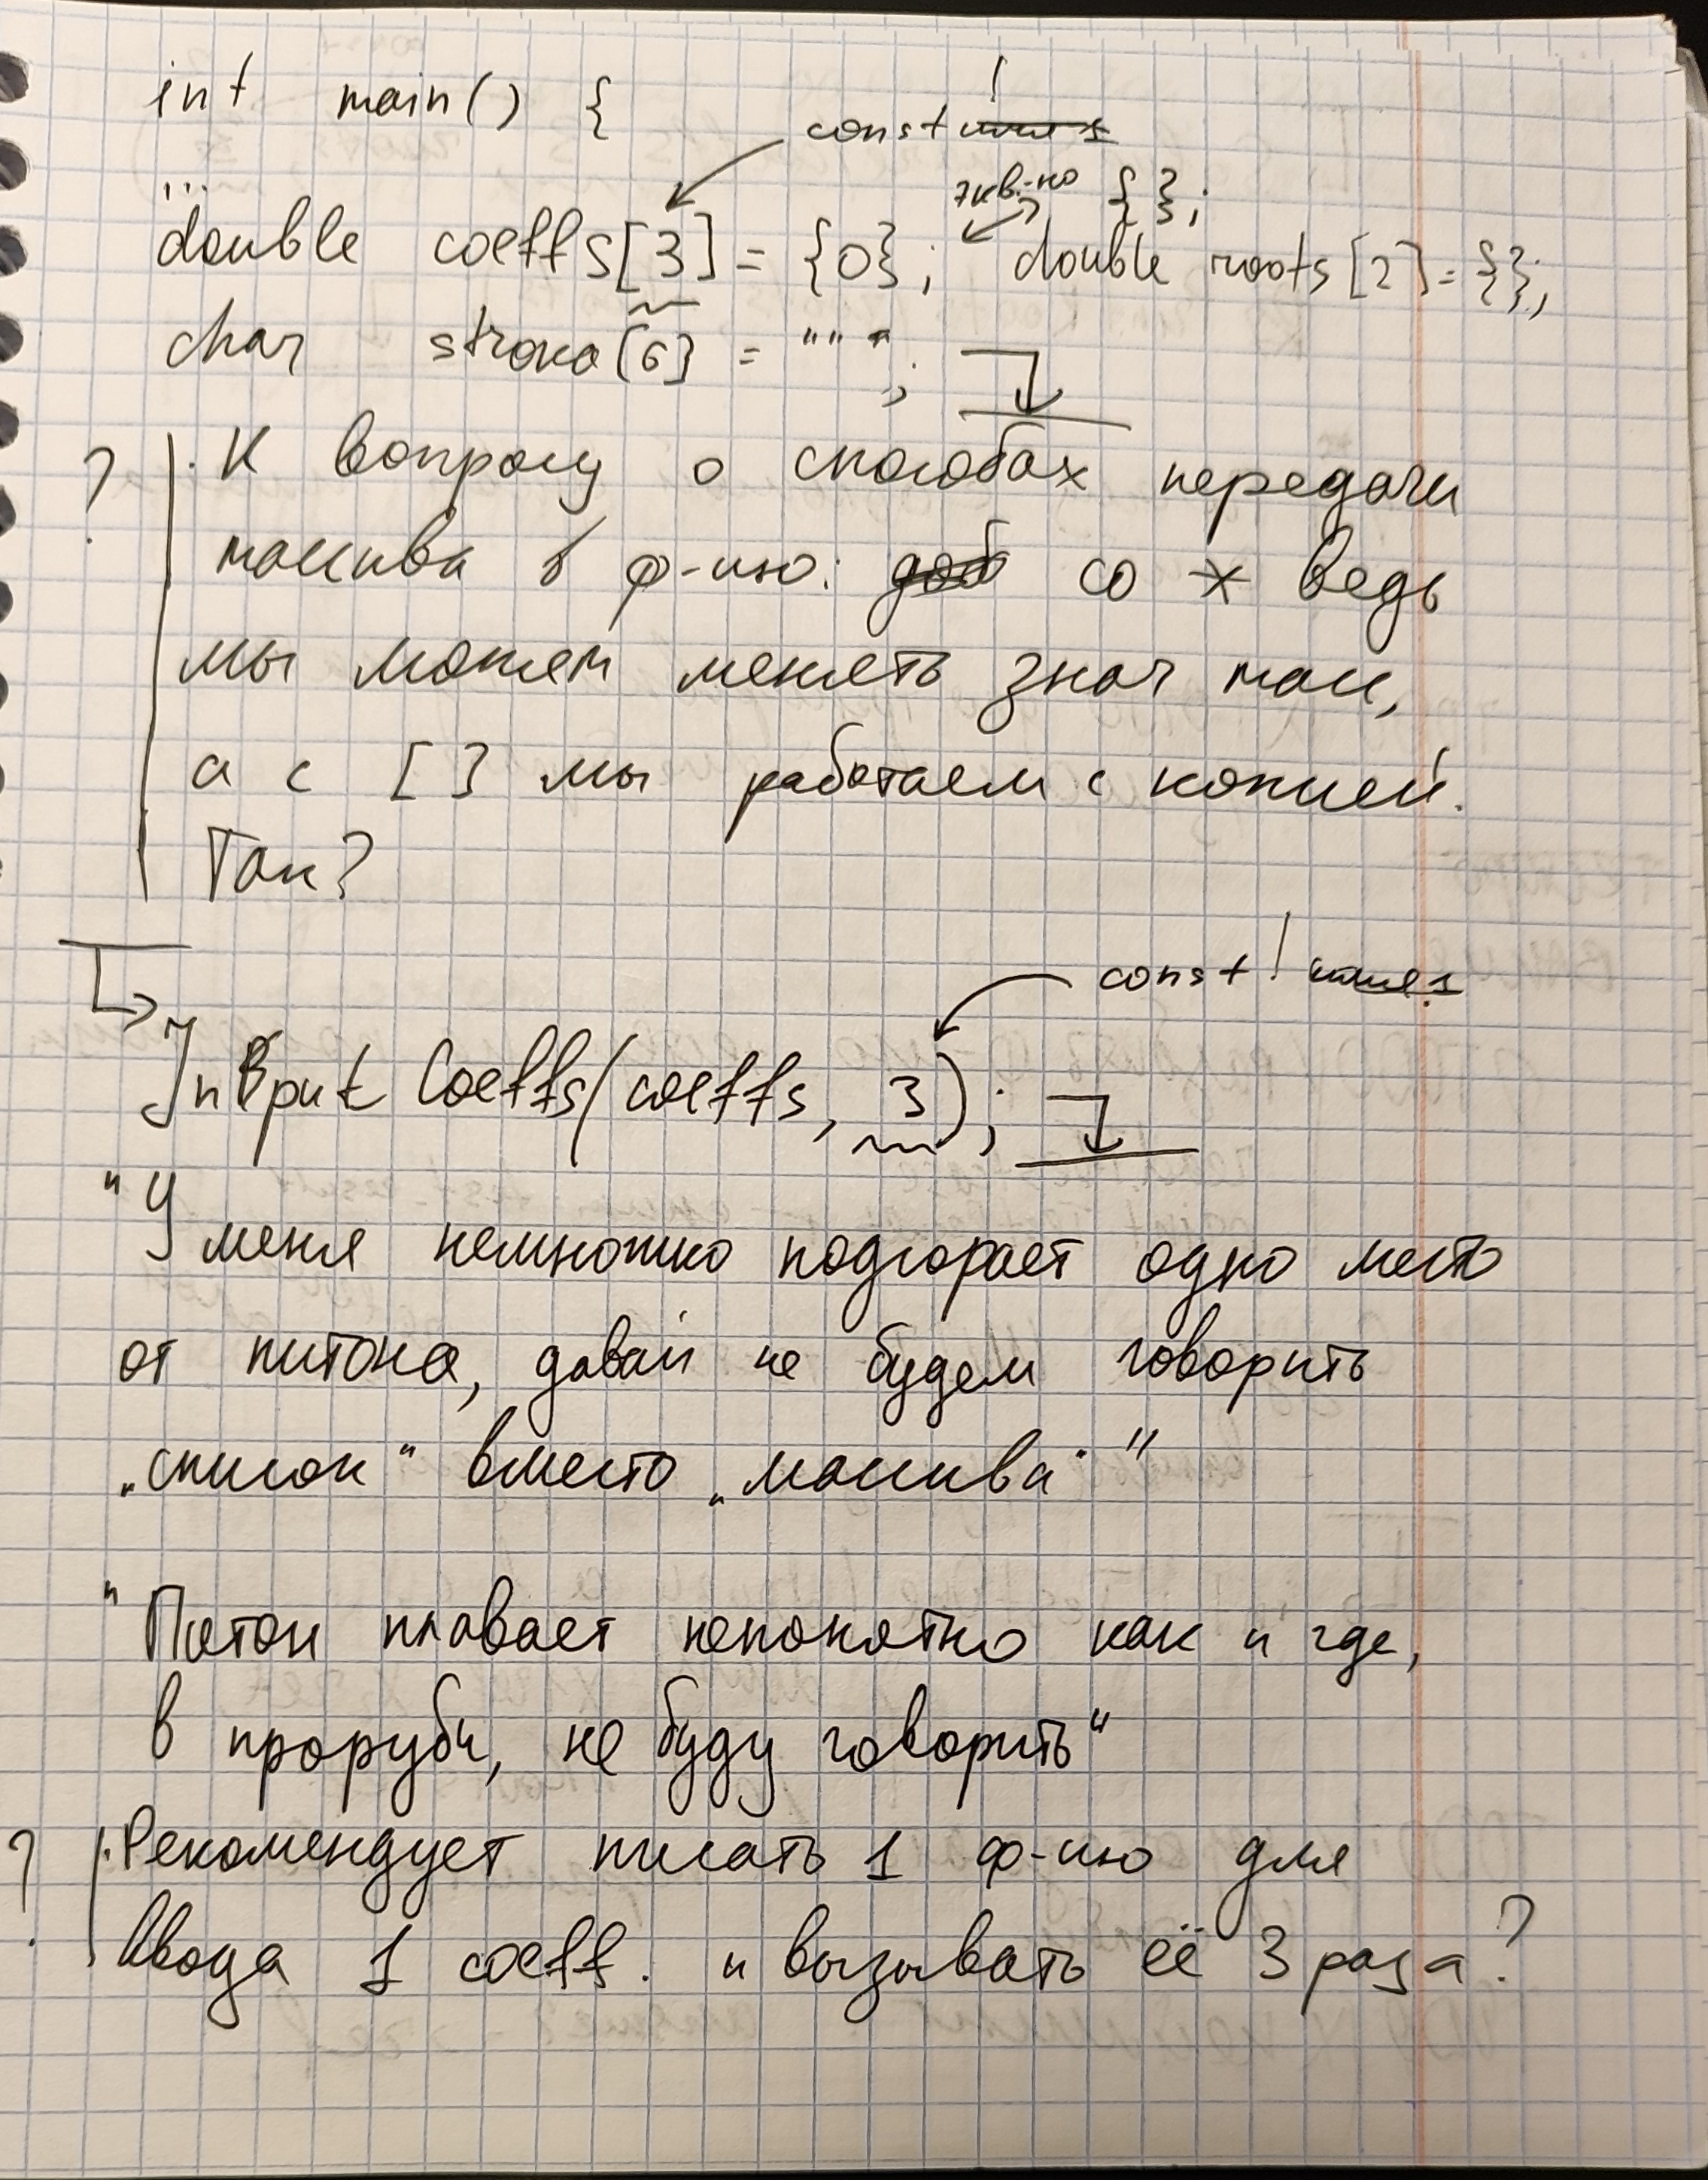 int main() {
const !
...
экв.-но {};
double coeffs[3] = {0}; double roots[2] = {};
char stroka[6] = "" ;
? К вопросу о способах передачи
массива в ф-ию: со * ведь
мы можем менять знач масс,
а с [ ] мы работаем с копией.
Так?
const !
Input Coeffs(coeffs, 3);
"У меня немножко подгорает одно место
от питона, давай не будем говорить
„список“ вместо „массива“"
"Питон плавает непонятно как и где,
в проруби, не буду говорить"
? Рекомендует писать 1 ф-ию для
ввода 1 coeff. и вызывать её 3 раза?